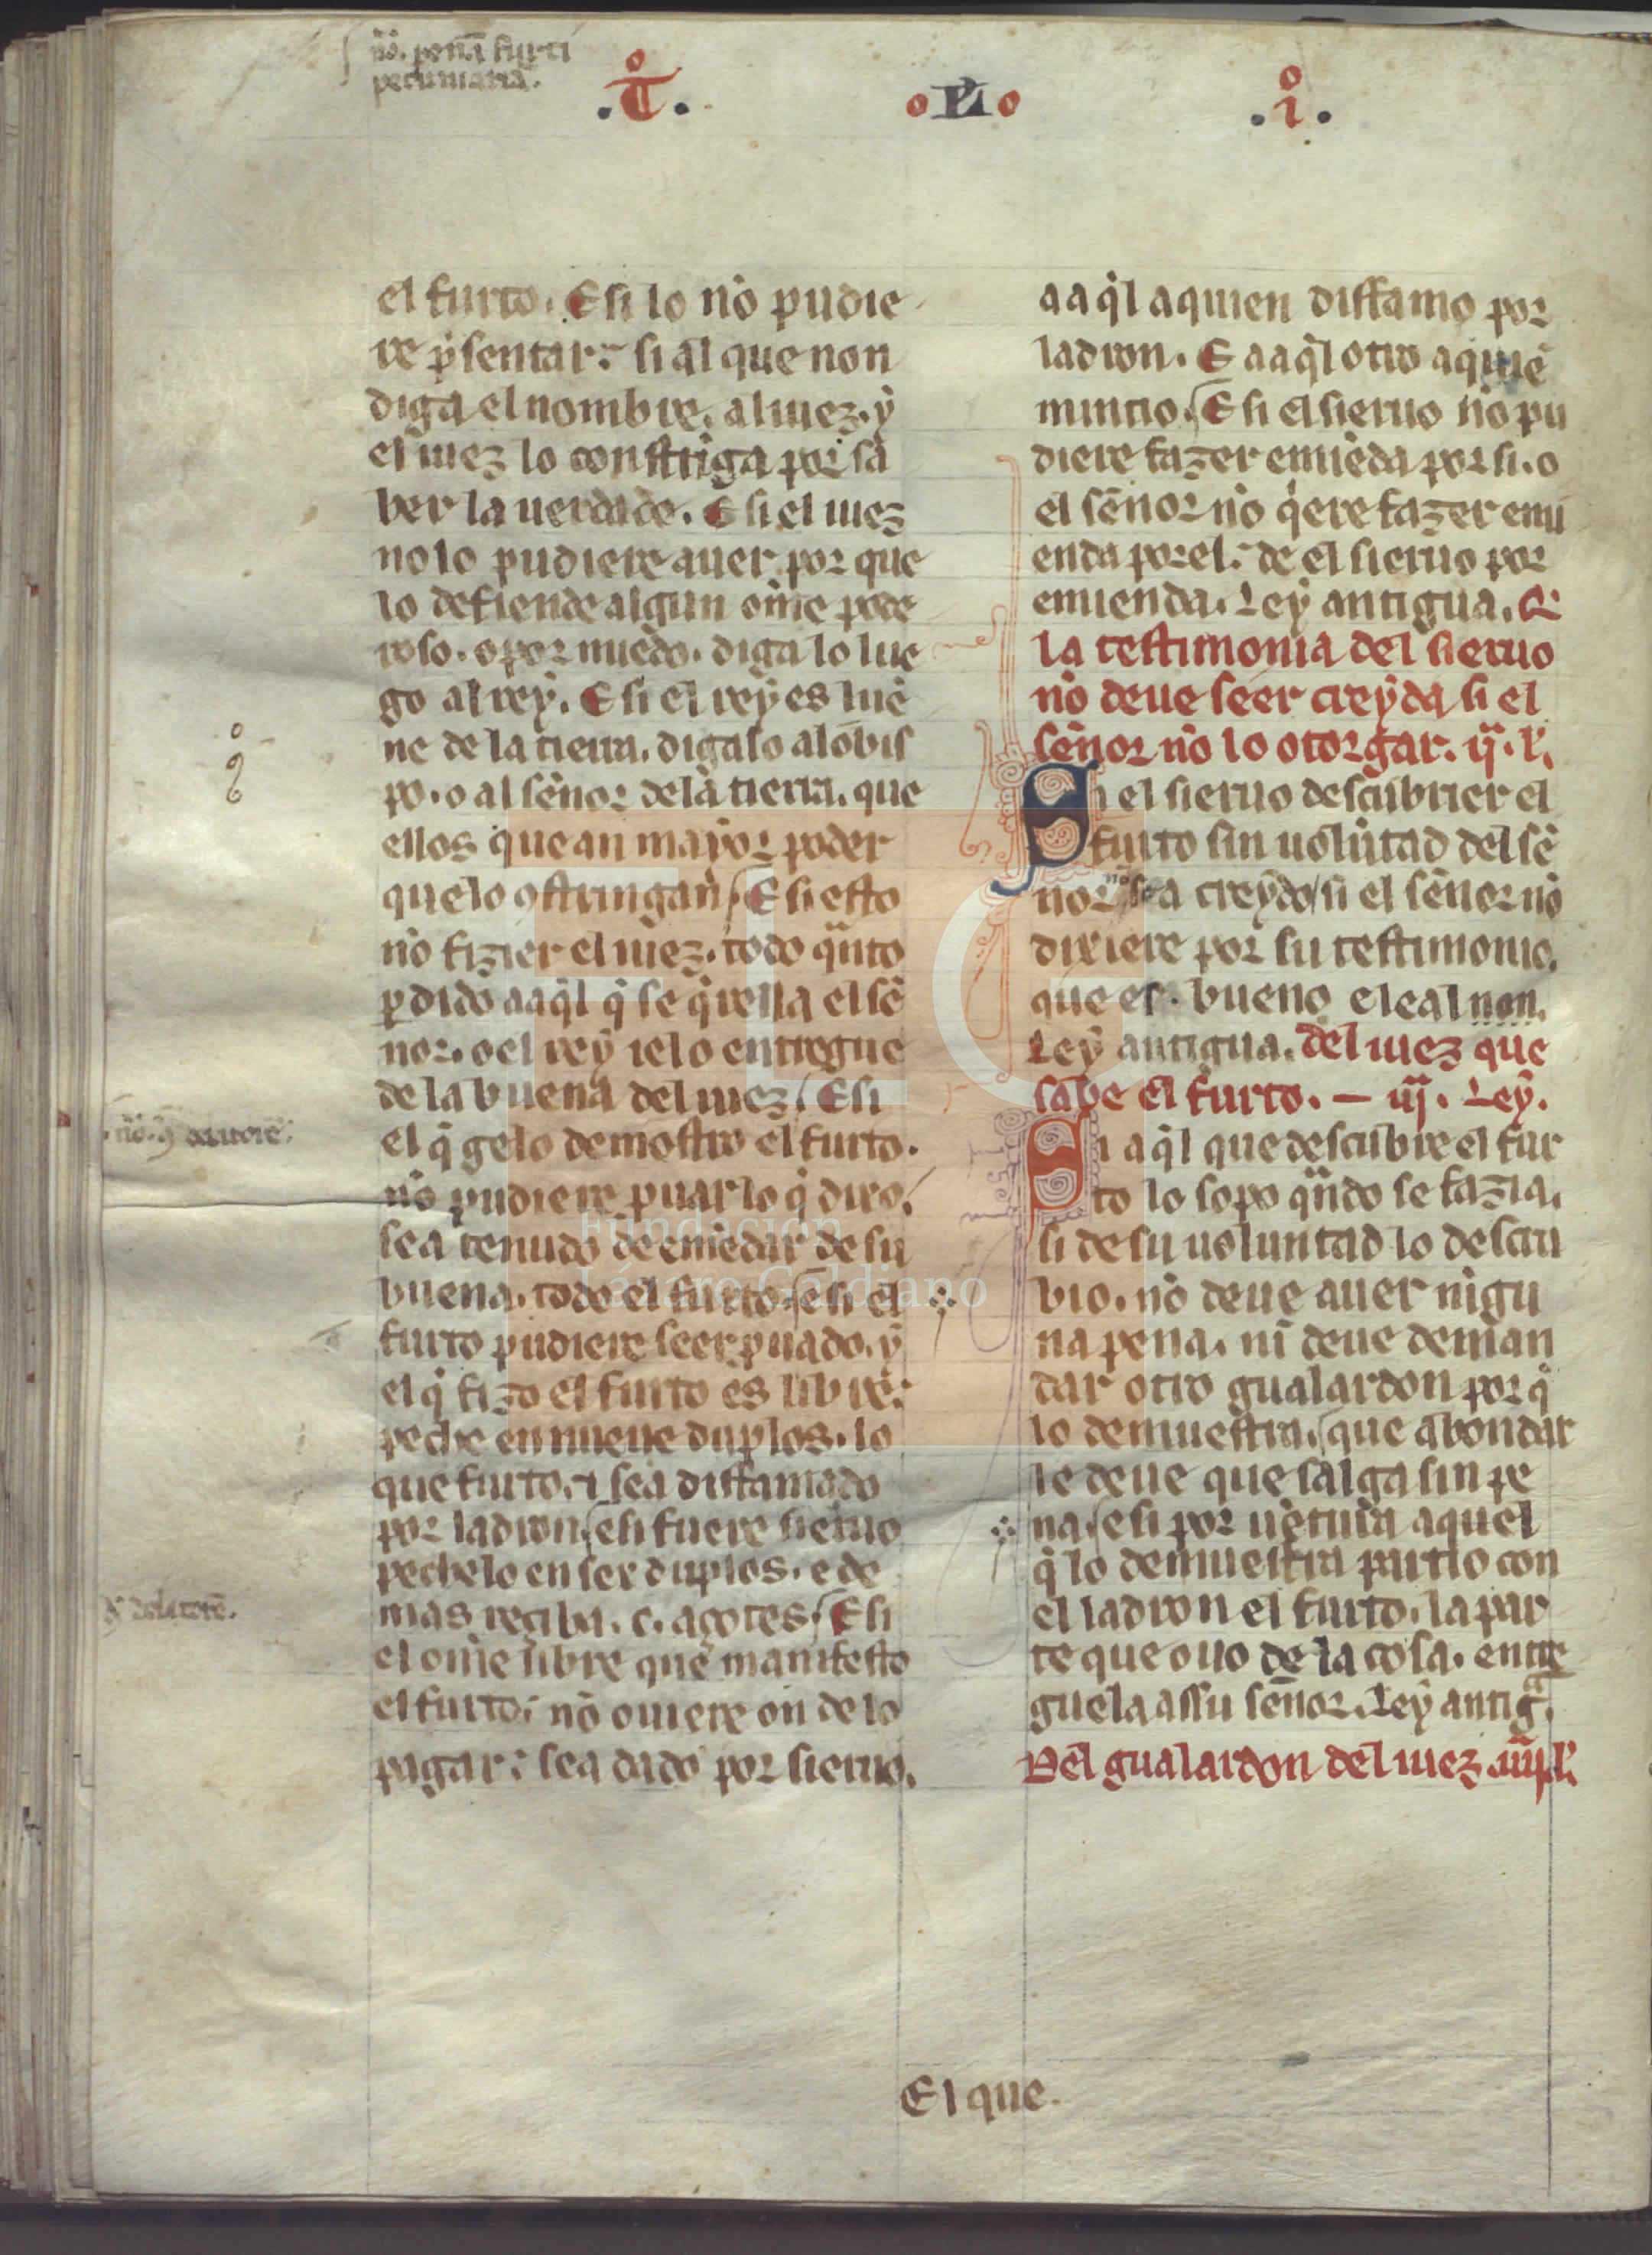 nō. penā furti
pecuniariā.
.T.
.VII.
.i.
el furto. E si lo nō pudie
re p̃sentar: si al que non
diga el nombre. al iuez. ẏ
el iuez lo constriga por sa
ber la uerdade. E si el iuez
no lo pudiere auer por que
lo defiende algun om̄e pode
roso. o por miedo. diga lo lue
go al reẏ. E si el reẏ es luē
ne de la tierra. digalo al obis
po. o al sēnor dela tierra. que
ellos que an maẏor poder
que lo ꝯstringan. E si esto
nō fizier el iuez. todo qnͣto
ꝑdido aaq̄l q̄ se q̄rella el sē
nor. o el reẏ ielo entregue
de la buena del iuez. E si
el q̄ gelo demostro el furto.
nō pudiere ꝓuar lo q̄ dixo.
sea tenudo de emēdar de su
buena. todo el furto. e si el
furto pudiere seer ꝓuado. ẏ
el q̄ fizo el furto es libre:
peche en nueue duplos. lo
que furto. ⁊ sea diffamado
por ladron. e si fuere sieruo
pechelo en sex duplos. e de
mas reciba. c. açotes. E si
el om̄e libre que manifesto
el furto: nō ouiere on de lo
pagar: sea dado por sieruo.
aaq̄l aquien diffamo por
ladron. E aaq̄l otro aquiē
mintio. E si el sieruo nō pu
diere fazer emiēda por si. o
el sēnor nō q̄ere fazer emi
enda por el: de el sieruo por
emienda. Leẏ antigua. Q̄
la testimonia del sieruo
nō deue seer creẏda si el
sēnor nō lo otorgar. ij. l.
Si el sieruo descubrier el
furto sin uolūtad del sē
nor no sea creẏdo si el sēnor nō
dixiere por su testimonio.
que es. bueno e leal non.
Leẏ antigua. del iuez que
sabe el furto. — iij. Leẏ.
Si aq̄l que descubre el fur
to lo sopo qnͣdo se fazia.
si de su uoluntad lo descu
brio. nō deue auer nigu
na pena. nī deue deman
dar otro gualardon por q̄
lo demuestra. que abondar
le deue que salga sin pe
na. e si por uētura aquel
q̄ lo demuestra partio con
el ladron el furto. la par
te que ouo de la cosa. entre
guela assu sēnor. Leẏ antigͣ.
Del gualardon del iuez. iiij. l.
El que.
Fundación
Lázaro Galdiano